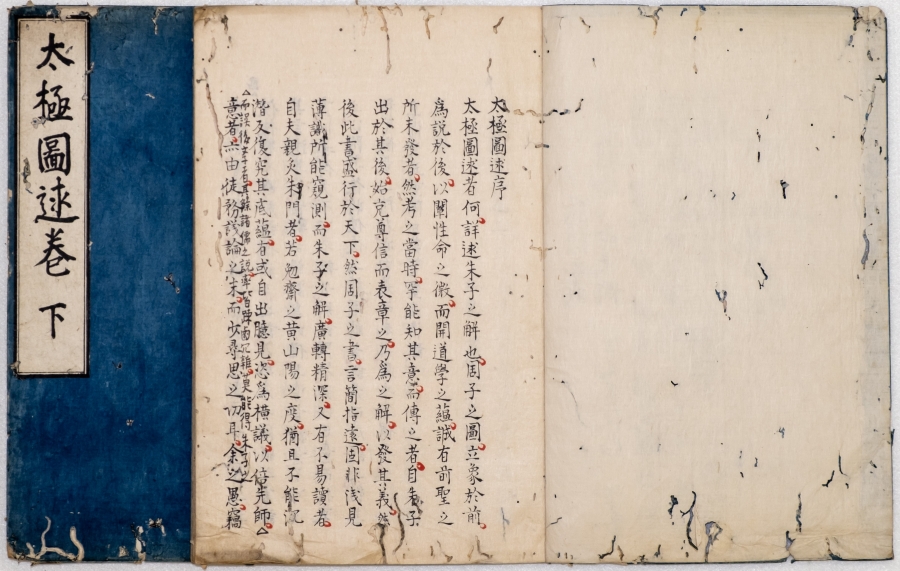 太極圖述卷 下
太極圖述序
太極圖述者何詳述朱子之解也周子之圖立象於前
為說於後以闡性命之微而開道學之蘊誠有前聖之
所未發者然考之當時罕能知其意而傳之者自朱子
出於其後始克尊信而表章之乃為之解以發其義然
後此書盛行於天下然周子之書言簡指遠固非淺見
薄識所能窺測而朱子之解廣轉精深又有不易讀者
自夫親炙朱門者若勉齋之黃山陽之度猶且不能沉
潛反復究其底蘊有或自出臆見恣為橫議以倍先師
而誤後學者其餘諸儒之說率皆
能得朱子之
意者亡由徒務議論之末而少尋思之切耳余之愚竊